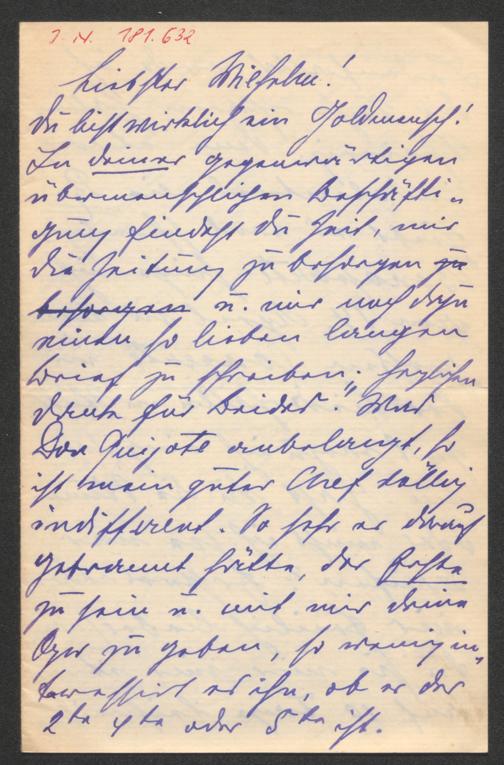 I. N. 181.632
Liebster Wilhelm!
Du bist wirklich ein Goldmensch!
In deiner gegenwärtigen
übermenschlichen Beschäfti-
gung findest du Zeit, mir
die Zeitung zu besorgen zu
besorgen u. mir noch dazu
einen so lieben langen
Brief zu schreiben; herzlichen
Dank für Beides." Was
Don Quijote anbelangt, so
ist mein guter Chef völlig
indifferent. So sehr er darauf
gebrannt hätte, der Erste
zu sein u. mit mir deine
Oper zu geben, so wenig in-
teressirt es ihn, ob er der
2te 4te oder 5te ist.